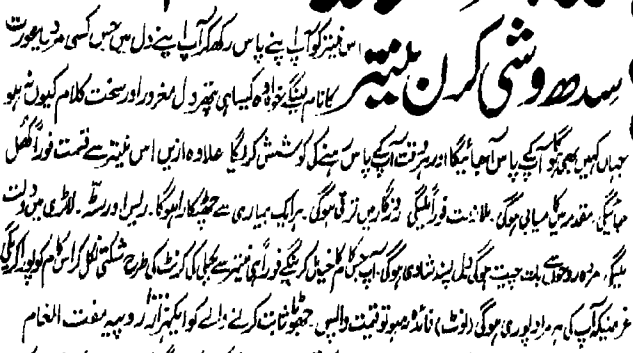 اس ینتر کو آپ اپنے پاس رکھ کر آپ اپنے دل میں جس کسی مرد یا عورت
سدھ وشی کرن ینتر
کا نام لینگے خواہ وہ کیسا ہی پتھر دل مغرور اور سخت کلام کیوں نہ ہو
جہاں کہیں بھی ہوگا آپ کے پاس آجائیگا اور ہروقت آپکے پاس رہنے کی کوشش کریگا علاوہ ازیں اس ینتر سے قسمت فوراً کھل
جائیگی۔ مقدمہ میں کامیابی ہوگی۔ ملازمت فوراً ملیگی روزگار میں ترقی ہوگی۔ ہرایک بیماری سے چھٹکارا ہوگا۔ ریس اور سٹہ۔ لاٹری میں دولت
ملیگی۔ مردہ روحوں سے بات چیت ہوگی دل پسند شادی ہوگی۔ آپ جس کام کا خیال کرینگے فوراً ہی ینتر سے بجلی کی کرنٹ کی طرح شکتی نکل کر اس کام کو پورا کریگی
غرضیکہ آپ کی ہر مراد پوری ہوگی (نوٹ) فائدہ نہ ہو تو قیمت واپس۔ جھوٹا ثابت کرنے والے کو ایکہزار روپیہ مفت انعام